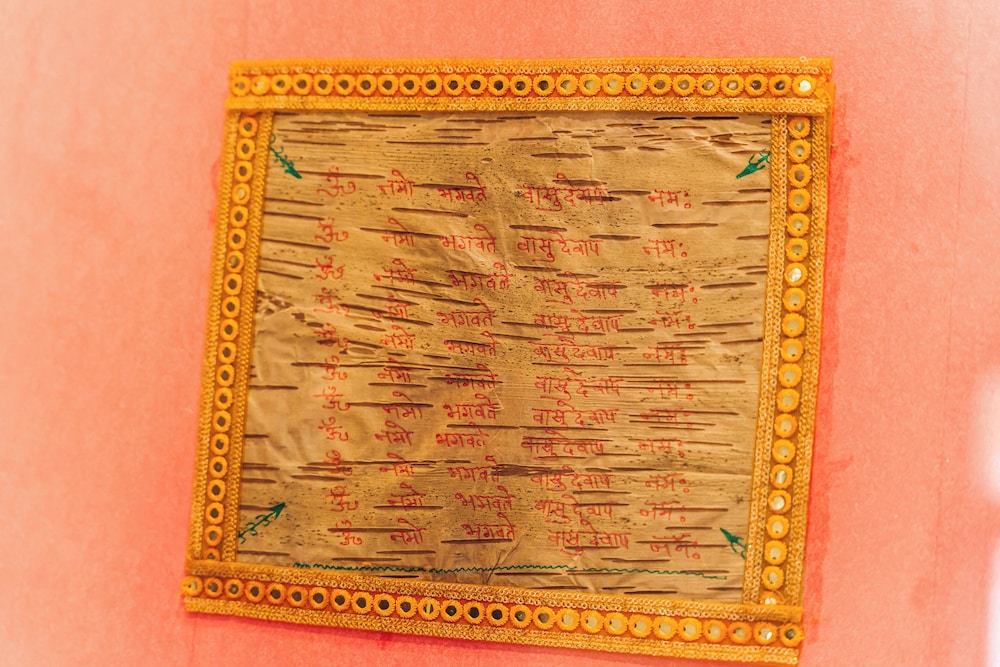 ॐ नमो भगवते वासुदेवाय नमः
ॐ नमो भगवते वासुदेवाय नमः
ॐ नमो भगवते वासुदेवाय नमः
ॐ नमो भगवते वासुदेवाय नमः
ॐ नमो भगवते वासुदेवाय नमः
ॐ नमो भगवते वासुदेवाय नमः
ॐ नमो भगवते वासुदेवाय नमः
ॐ नमो भगवते वासुदेवाय नमः
ॐ नमो भगवते वासुदेवाय नमः
ॐ नमो भगवते वासुदेवाय नमः
ॐ नमो भगवते वासुदेवाय नमः